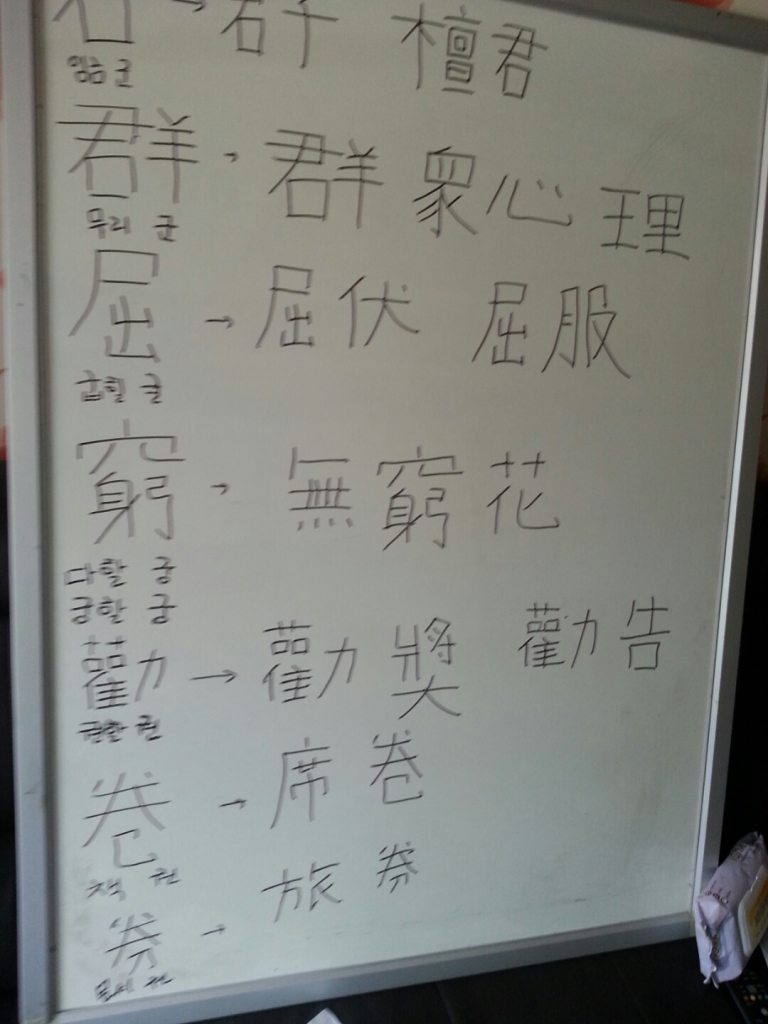 君 → 君子 檀君
임금 군
群 → 群衆心理
무리 군
屈 → 屈伏 屈服
굽힐 굴
窮 → 無窮花
다할 궁
궁할 궁
勸 → 勸奬 勸告
권할 권
卷 → 席卷
책 권
券 → 旅券
문서 권